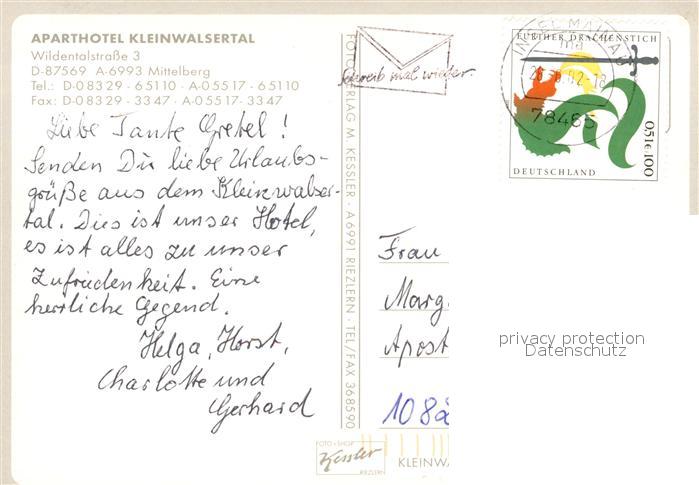 APARTHOTEL KLEINWALSERTAL
Wildentalstraße 3
D-87569 A-6993 Mittelberg
Tel.: D-08329-65110 · A-05517-65110
Fax: D-08329-3347 · A-05517-3347
Liebe Tante Gretel!
Senden Dir liebe Urlaubs-
grüße aus dem Kleinwalser-
tal. Dies ist unser Hotel,
es ist alles zu unser
Zufriedenheit. Eine
herrliche Gegend.
Helga, Horst,
Charlotte und
Gerhard
FOTO-VERLAG M. KESSLER · A 6991 RIEZLERN · TEL/FAX 368590
Schreib mal wieder.
INSEL MAINAU
78465
FURTHER DRACHENSTICH
0,51€ 100
DEUTSCHLAND
Frau
Marg
Apost
108
privacy protection
Datenschutz
FOTO · SHOP
Kessler
RIEZLERN
KLEINWA